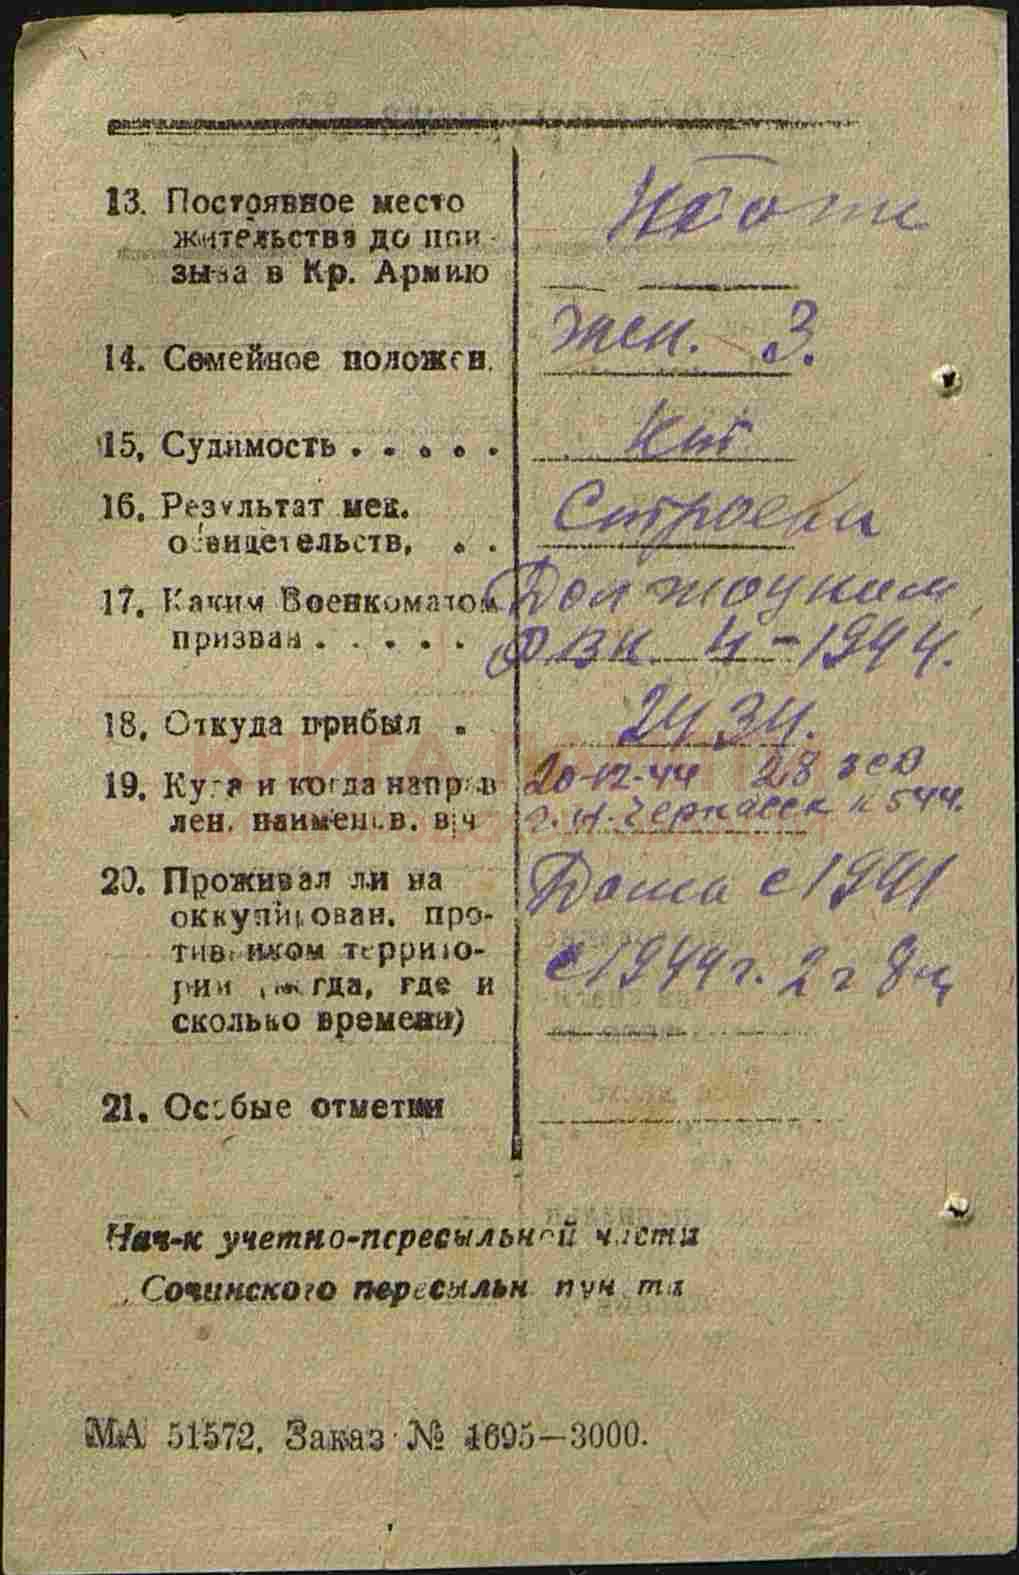 13. Постоянное место
жительства до при-
зыва в Кр. Армию
14. Семейное положен. жен. 3.
15. Судимость . . . . . нет
16. Результат мед.
освидетельств. . . Строевой
17. Каким Военкоматом
призван . . . . . РВК 4-1944.
18. Откуда прибыл . 2434.
19. Куда и когда направ 20-12-44 28 зсд
лен. наименов. в|ч г. Н. Черкасск к 544.
20. Проживал ли на Дома с 1941
оккупирован. про-
тивником террито- с 1944 г. 2 г 8 м
рии (когда, где и
сколько времени)
21. Особые отметки
КНИГА
Нач-к учетно-пересыльной части
Сочинского пересыльн пункта
МА 51572. Заказ № 1695—3000.